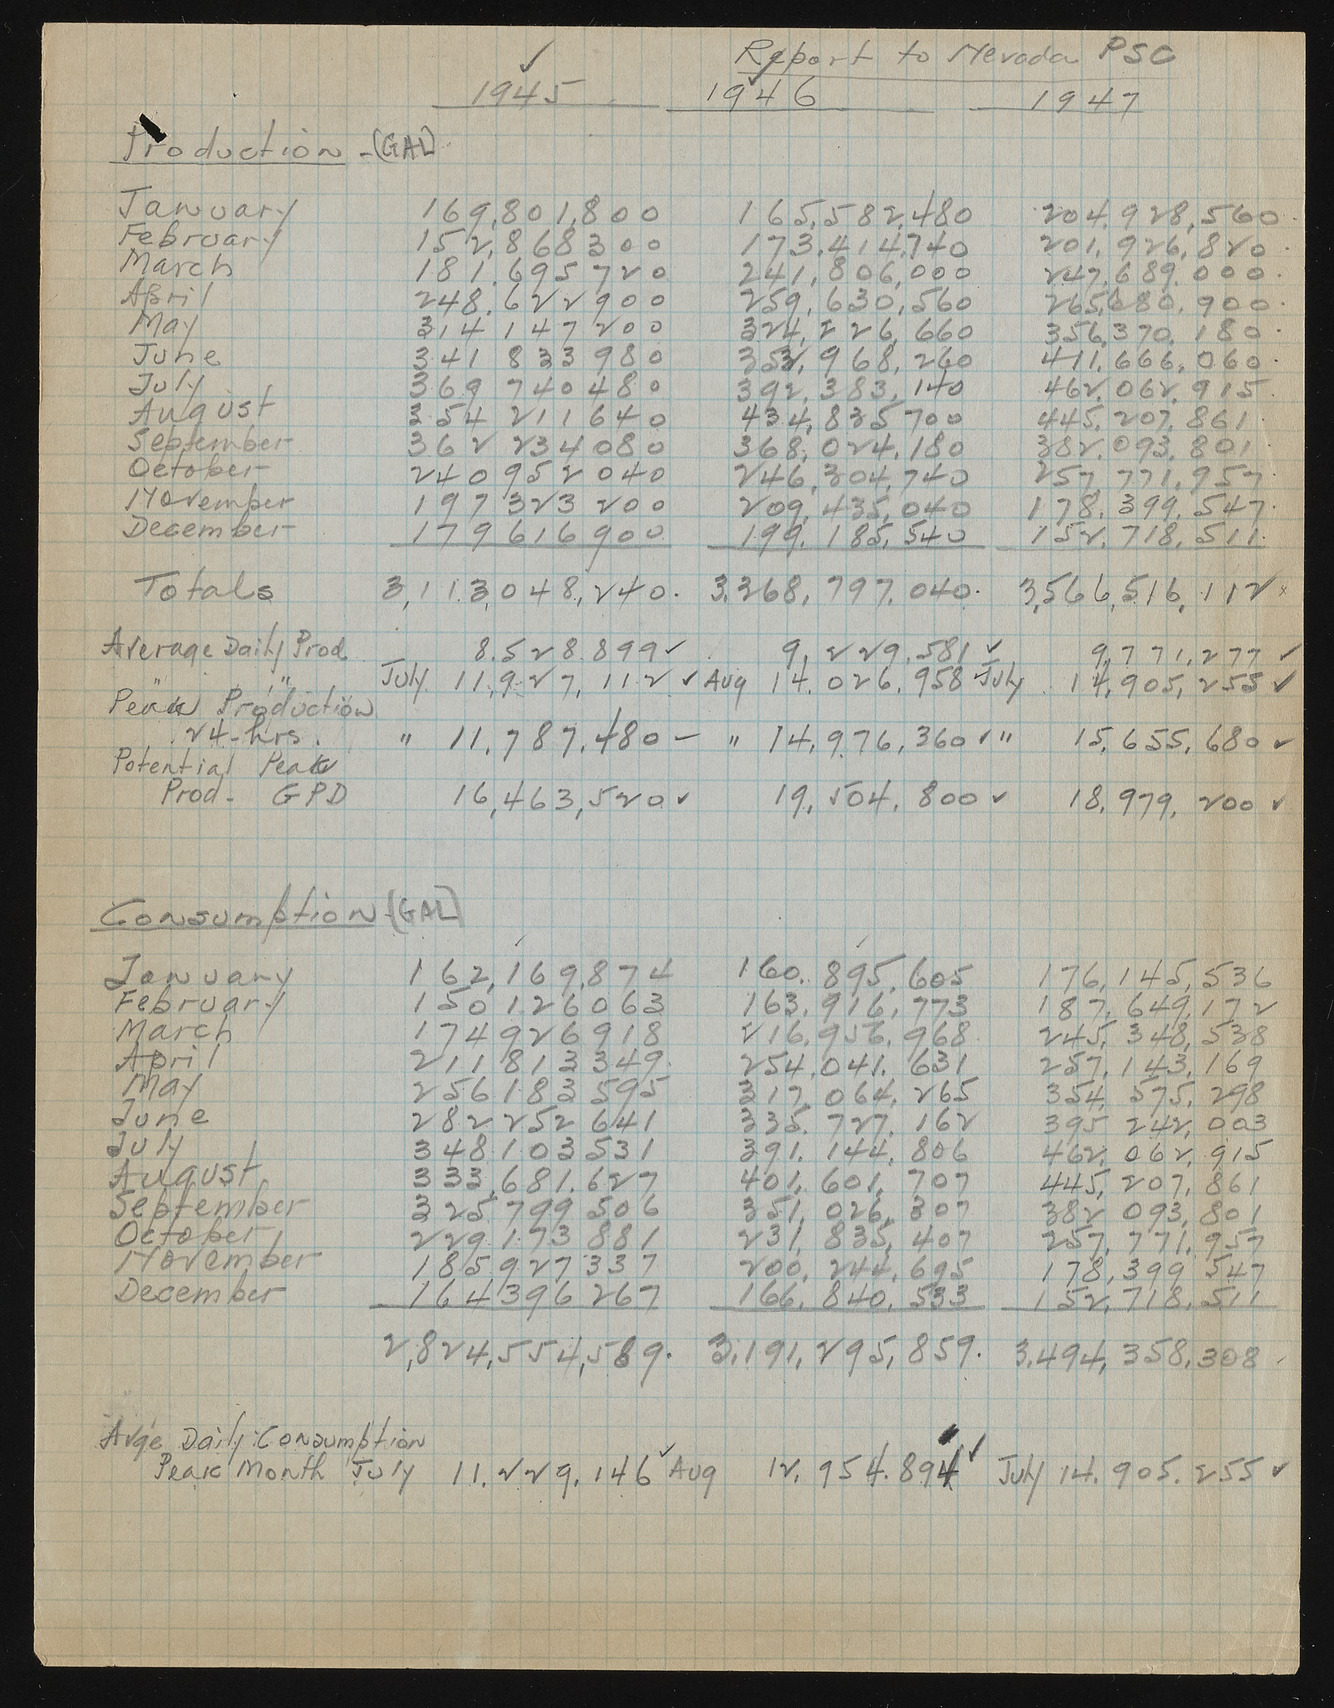 Report to Nevada PSC
1945 1946 1947
Production - (GAL)
January 169,801,800 165,582,480 204,928,560
February 152,868300 173,414,740 201,926,820
March 181,695720 241,806,000 247,689,000
April 248,622900 259,630,560 265,680,900
May 314147200 324,226,660 356,370,180
June 341833980 352,968,260 411,666,060
July 369740480 392,383,140 462,062,915
August 354211640 434,835700 445,207,861
September 362234080 368,024,180 382,093,801
October 240952040 246,304,740 257771,957
November 197323200 209,435,040 178,399,547
December 179616900 199,185,540 152,718,511
Totals 3,113,048,240. 3,268,797,040. 3,566,516,112
Average Daily Prod 8,528,899 ✓ 9,229,581 ✓ 9,771,277 ✓
" " July 11,927,112 ✓ Aug 14,026,958 ✓ July 14,905,255 ✓
Peak Production
24-hrs. " 11,787,480 - " 14,976,360 ✓ " 15,655,680 ✓
Potential Peak
Prod. GPD 16,463,520 ✓ 19,504,800 ✓ 18,979,200 ✓
Consumption (GAL)
January 162,169,874 160,895,605 176,145,536
February 150126063 163,916,773 187,649,172
March 174926918 216,956,968 245,348,538
April 211813349 254,041,631 257,143,169
May 256183595 317,064,265 354,575,298
June 282252641 335,727,162 395242,003
July 348103531 391,144,806 462,062,915
August 333,681,627 401,601,707 445,207,861
September 325799506 351,026,307 382093,801
October 229173881 231,835,407 257,771,957
November 185927337 200,244,695 178,399547
December 164396267 166,840,533 152,718,511
2,824,554,589. 3,191,295,859. 3,494,358,308
Avge Daily Consumption
Peak Month July 11,229,146 ✓ Aug 12,954,894 ✓ July 14,905,255 ✓